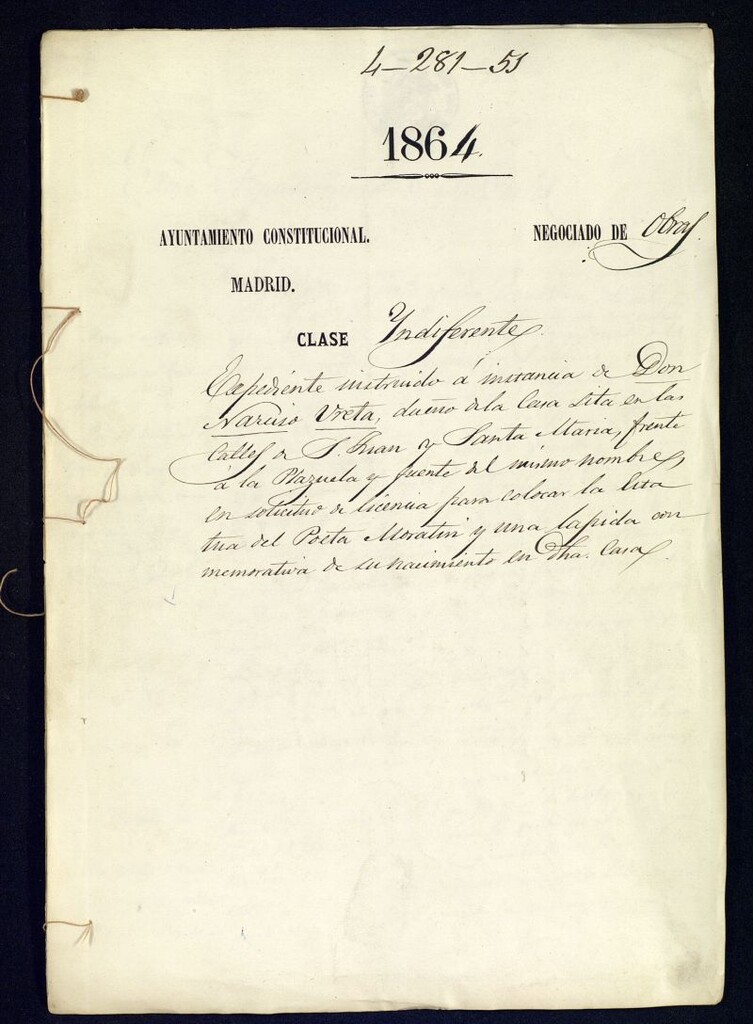 4-281-51
1864.
AYUNTAMIENTO CONSTITUCIONAL.
NEGOCIADO DE Obras.
MADRID.
CLASE Yndiferente
Expediente instruido á instancia de Don
Narciso Ureta, dueño de la Casa sita en las
Calles de S. Juan y Santa Maria, frente
á la Plazuela y fuente del mismo nombre,
en solicitud de licencia para colocar la Esta
tua del Poeta Moratin y una lapida con
memorativa de su nacimiento en dha. Casa